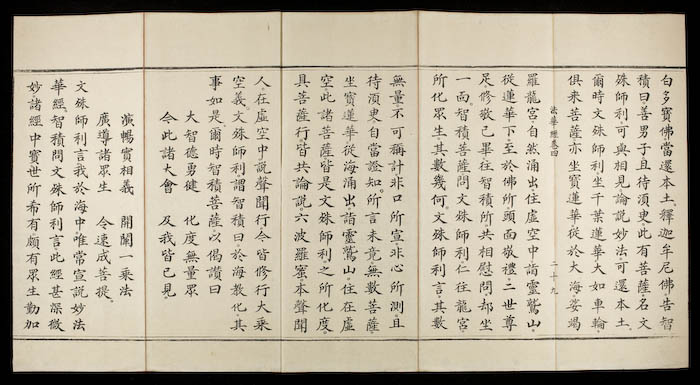 白多寶佛當還本土、釋迦牟尼佛告智
積曰善男子且待須臾此有菩薩。名文
殊師利可與相見論說妙法可還本土。
爾時文殊師利坐千葉蓮華大如車輪。
俱來菩薩亦坐寶蓮華從於大海娑竭
法華經卷四 二十九
羅龍宮自然涌出住虛空中詣靈鷲山。
從蓮華下至於佛所頭面敬禮。二世尊
足修敬已畢往智積所共相慰問却坐
一面。智積菩薩問文殊師利仁往龍宮。
所化眾生其數幾何文殊師利言其數
無量不可稱計非口所宣非心所測且
待須臾自當證知。所言未竟。無數菩薩。
坐寶蓮華從海涌出詣靈鷲山住在虛
空此諸菩薩皆是文殊師利之所化度。
具菩薩行皆共論說六波羅蜜本聲聞
人。在虛空中說聲聞行今皆修行大乘
空義。文殊師利謂智積曰。於海教化其
事如是爾時智積菩薩以偈讚曰
大智德勇健 化度無量眾
今此諸大會 及我皆已見
演暢實相義 開闡一乘法
廣導諸眾生 令速成菩提。
文殊師利言我於海中唯常宣說妙法
華經、智積問文殊師利言此經甚深微
妙諸經中寶世所希有。頗有眾生勤加